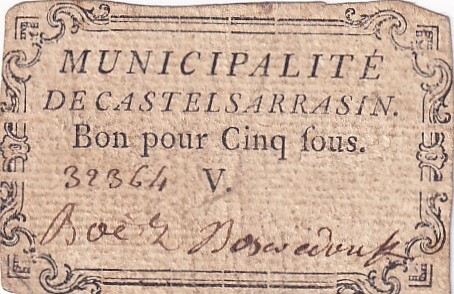 MUNICIPALITÉ
DE CASTELSARRASIN.
Bon pour Cinq ſous.
32364 V.